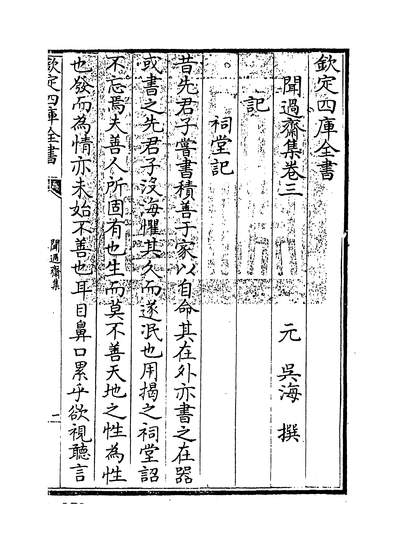 欽定四庫全書
聞過齋集卷三
元 吳海 撰
記
祠堂記
昔先君子嘗書積善于家以自命其在外亦書之在器
或書之先君子沒海懼其久而遂泯也用揭之祠堂詔
不忘焉夫善人所固有也生而莫不善天地之性為性
也發而為情亦未始不善也耳目鼻口累乎欲視聽言
欽定四庫全書
聞過齋集